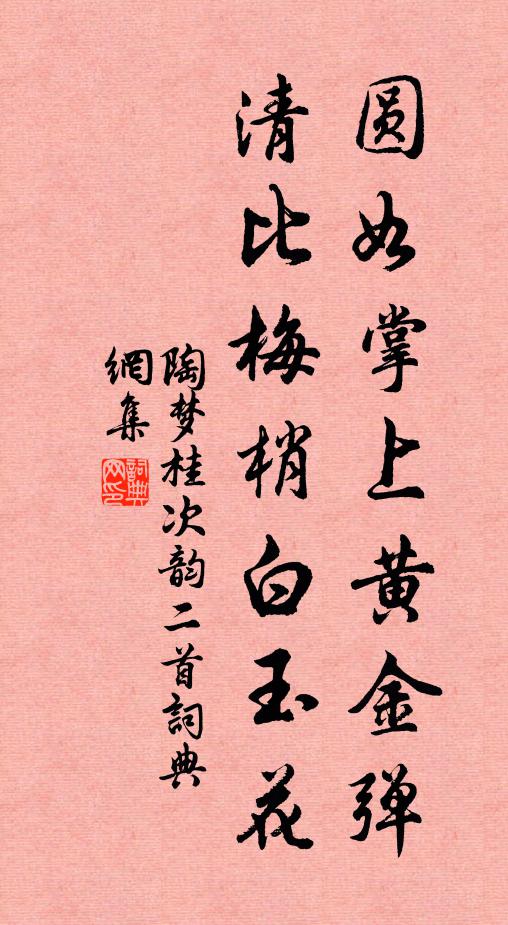 圆如掌上黄金弹
清比梅梢白玉花
陶梦桂次韵二首詞典
網集
詞典
网印